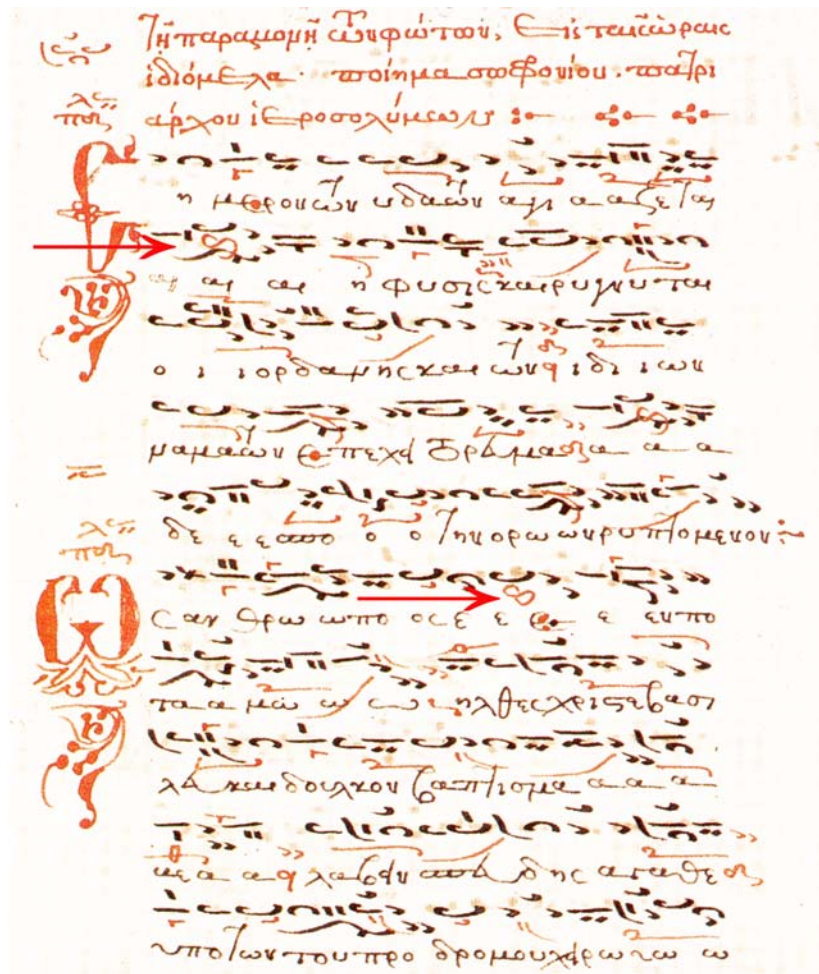 Τῇ παραμονῇ τῶν φώτων, Εἰς τὰς ὥρας
ἰδιόμελα· ποίημα σωφρονίου· πατρι
άρχου ἱεροσολύμων
Σ η με ρον των υ δα των αγι α α ζε ται
αι αι η φυσις και ρυγνυται
ο ι ιορδανης και των ιδι ιων
ναματων επεχει
δε ε ε σπο ο ο την ορω ων ρυπτομενον
Ω ς αν θρω ω πο ος ε ε ε ε εν πο
τα α μω ω ω ηλθες χριστε βασι
λευ και δουλικον βαπτισμα α α α
λαβειν σπευ δης αγαθε
υπο των του προ δρομου χειρω ω ω